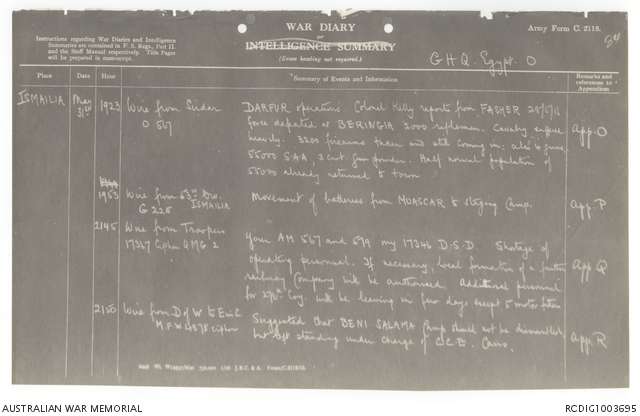 Instructions regarding War Diaries and Intelligence
Summaries are contained in F. S. Regs., Part II.
and the Staff Manual respectively. Title Pages
will be prepared in manuscript.
WAR DIARY
or
INTELLIGENCE SUMMARY
(Erase heading not required.)
Army Form C. 2118.
84
G H Q. Egypt. O
Place
Date
Hour
Summary of Events and Information
Remarks and
references to
Appendices
ISMAILIA
May
31st
1923
Wire from Sirdar
O 567
DARFUR operations Colonel Kelly reports from FASHER
force defeated at BERINGIA 3000 riflemen. Cavalry
heavily. 3200 firearms taken and still coming in. also 6 guns
55000 SAA, gun powder. Half normal population of
55000 already returned to town
App. O
1953
Wire from 53rd Div.
G 225 ISMAILIA
Movement of batteries from MOASCAR to staging Camp.
App. P
2145
Wire from Troopers
17347 Cipher QMG 2
Your AM 567 and 599 my 17346 D.S.D. Shortage of
operating personnel. If necessary, local formation of a further
railway Company will be authorised. Additional personnel
for Coy. will be leaving in few days except 5 motor
App. Q
2150
Wire from D of W to E in C
M.F.W 4878 cipher
Suggested that BENI SALAMA Camp should not be dismantled
but left standing under charge of C.C.E. Cairo.
App. R
AUSTRALIAN WAR MEMORIAL
RCDIG1003695